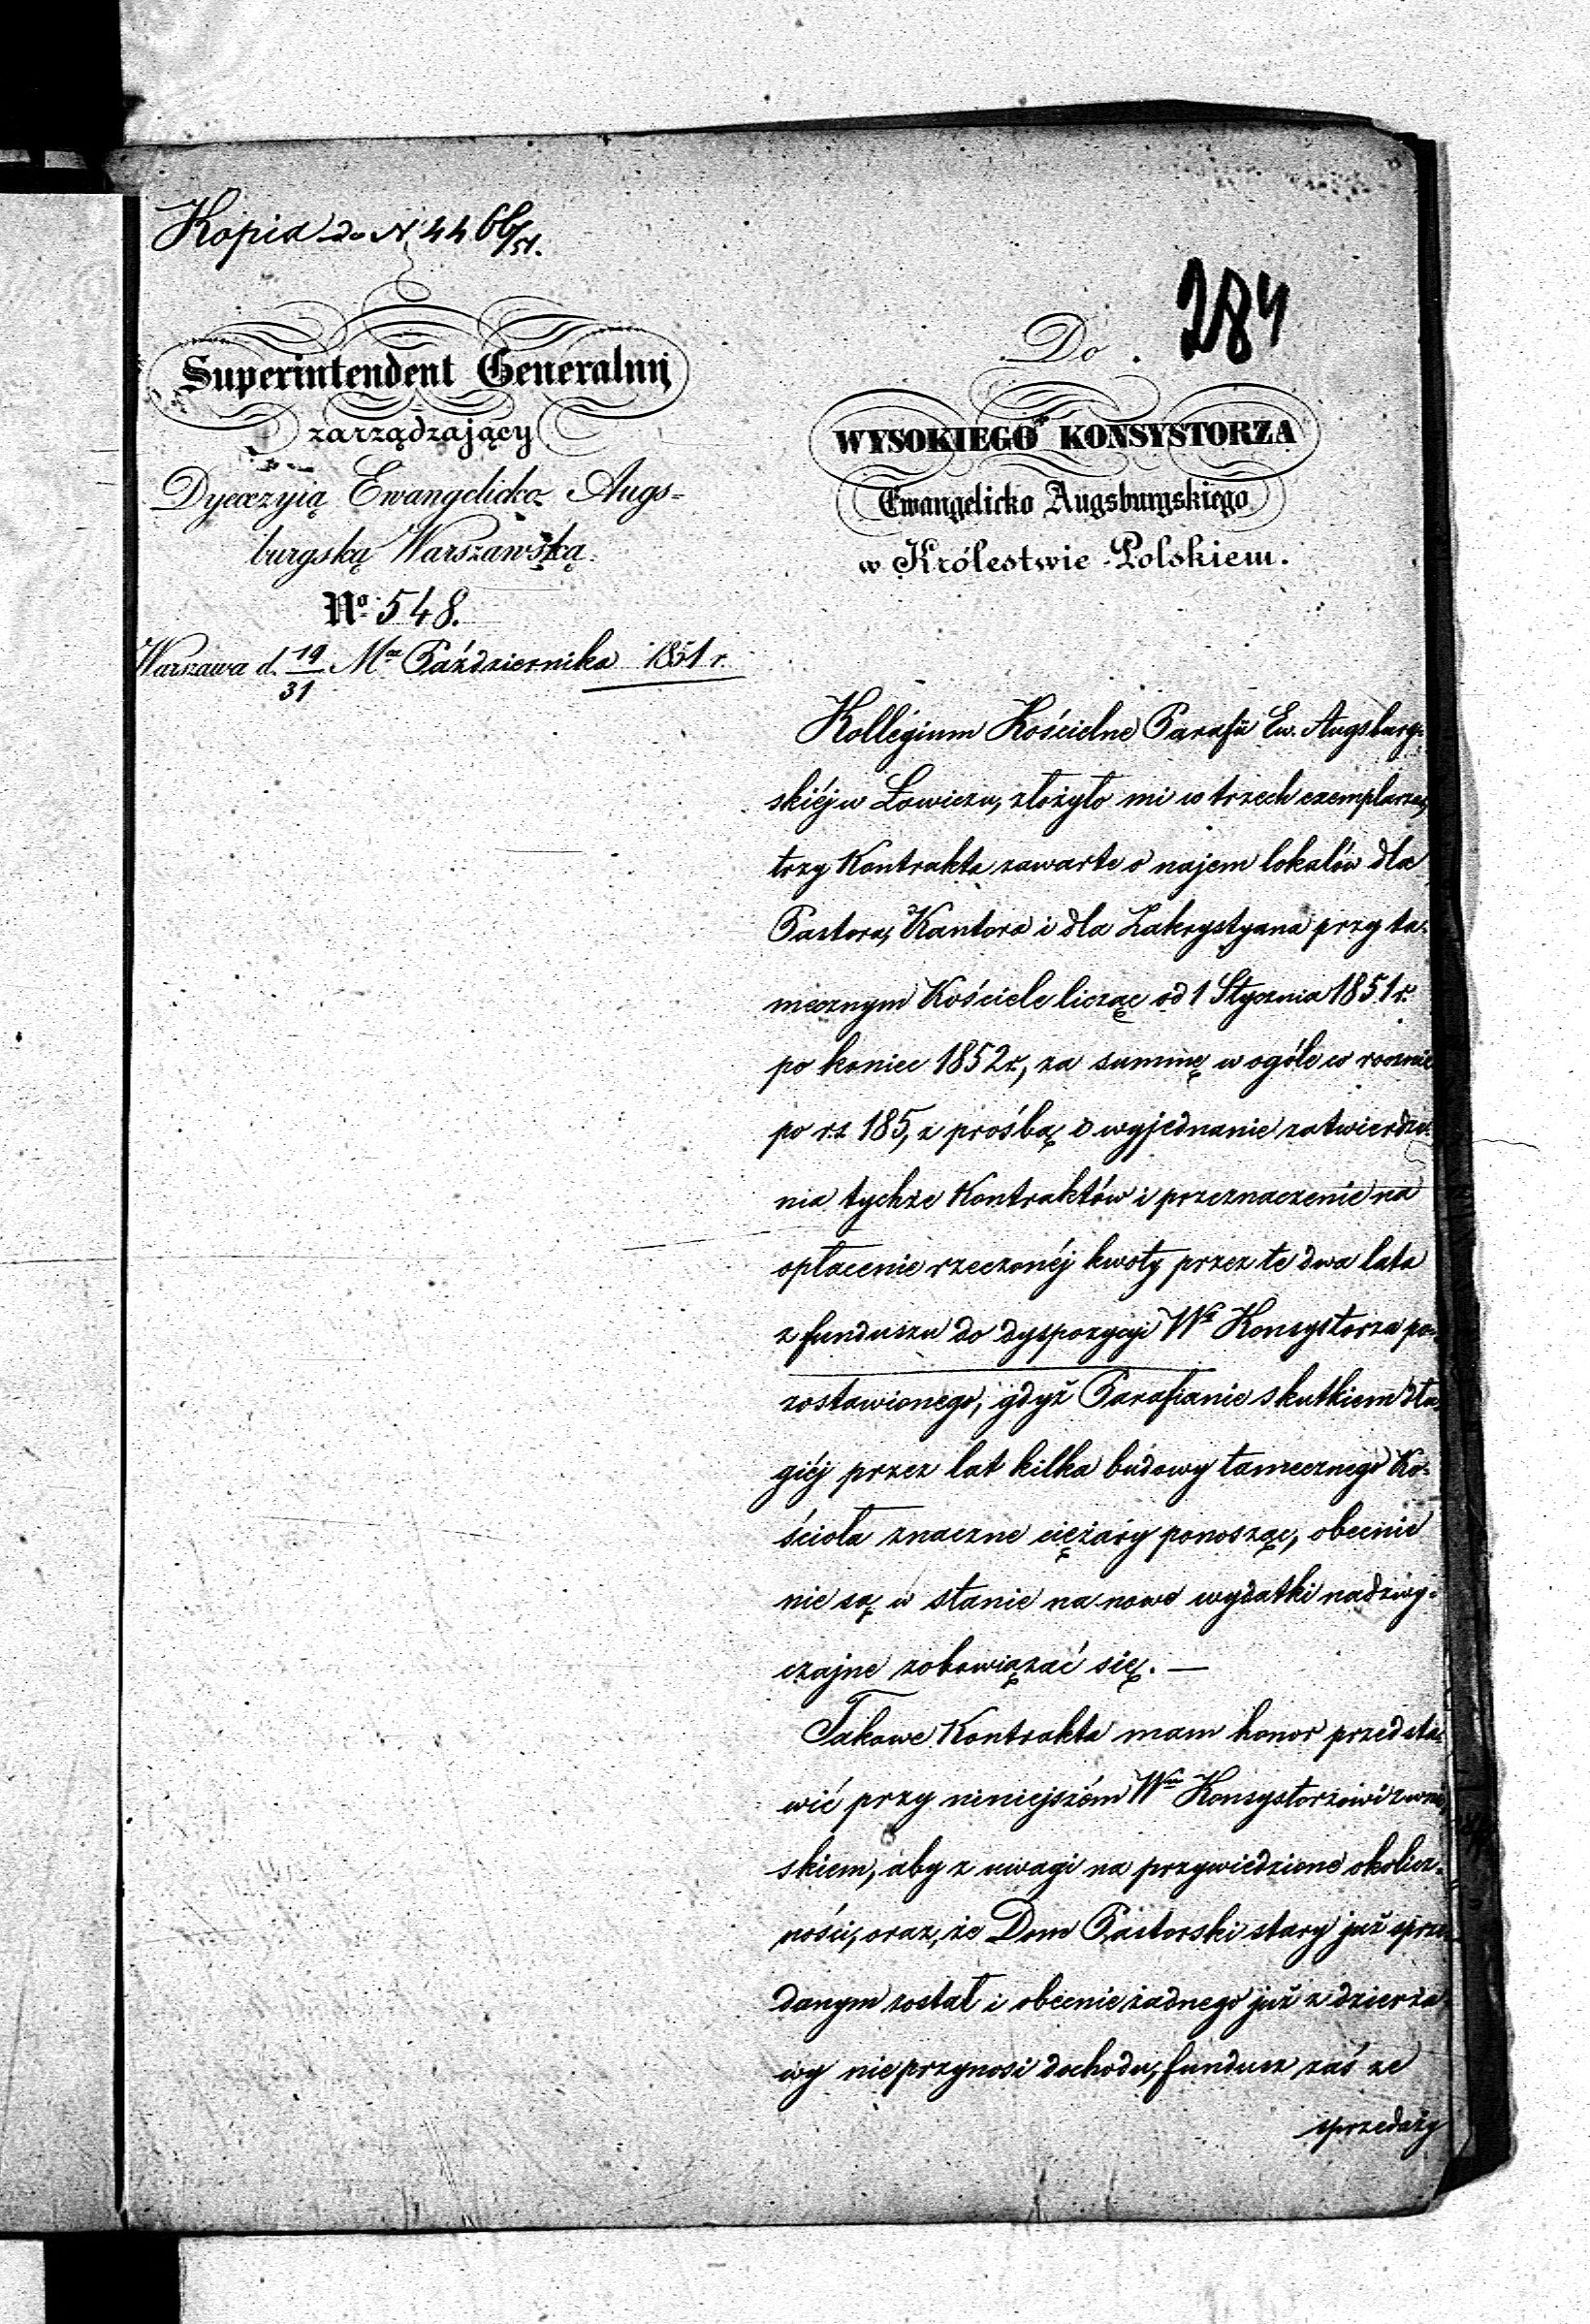 Kopia do N 4466/51.
284
Superintendent Generalny
zarządzający
Dyecezyią Ewangelicko Augs=
burgską Warszawską.
No. 548.
Warszawa d. 19/31 Mca Października 1851 r.
Do
WYSOKIEGO KONSYSTORZA
Ewangelicko Augsburgskiego
w Królestwie Polskiem.
Kollegium Kościelne Parafii Ew. Augsburg-
skiéj w Łowiczu, złożyło mi w trzech exemplarzach
trzy Kontrakta zawarte o najem lokalów dla
Pastora, Kantora i dla Zakrystyana przy ta-
mecznym Kościele licząc od 1 Stycznia 1851 r.
po koniec 1852 r., za summę w ogóle w rocznie
po rs 185, z prośbą o wyjednanie zatwierdze-
nia tychże Kontraktów i przeznaczenie na
opłacenie rzeczonéj kwoty przez te dwa lata
z funduszu do dyspozycyi Wgo Konsystorza po-
zostawionego, gdyż Parafianie skutkiem dłu-
giéj przez lat kilka budowy tamecznego Ko-
ścioła znaczne ciężary ponosząc, obecnie
nie są w stanie na nowe wydatki nadzwy-
czajne zobowiązać się. —
Takowe Kontrakta mam honor przedsta-
wić przy niniejszém Wmu Konsystorzowi z wnio-
skiem, aby z uwagi na przywiedzione okolicz-
ności, oraz, że Dom Pastorski stary już sprze-
danym został i obecnie żadnego już z dzierża-
wy nie przynosi dochodu, fundusz zaś ze
sprzedaży